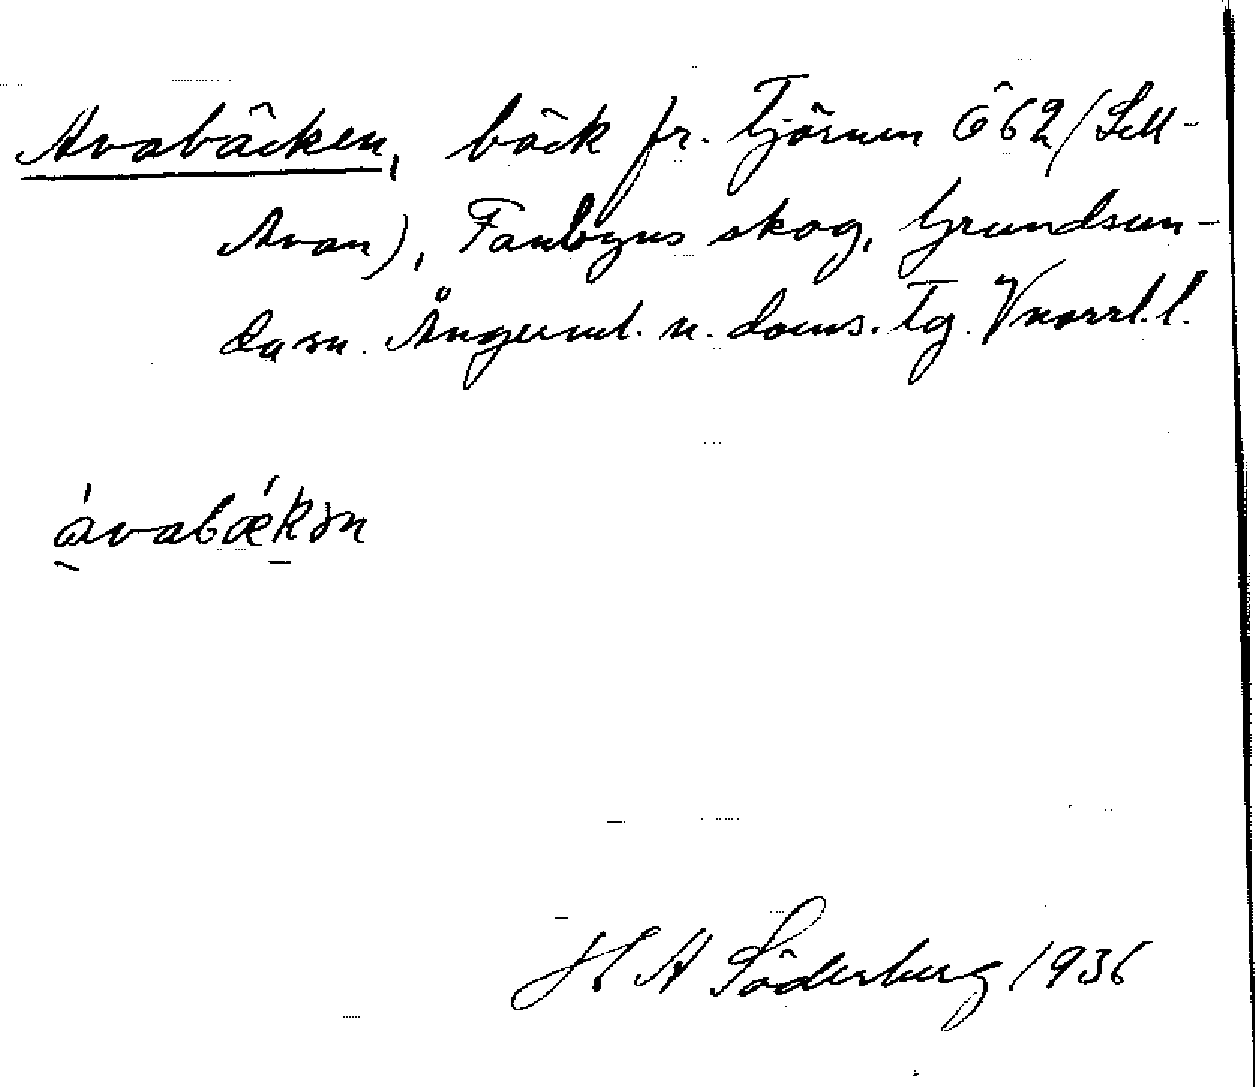 Avabäcken, bäck fr. Tjärnen Ö 62 (Lill-
Avan), Fanbyns skog, Grundsun-
da sn. Ångerml. n. doms. Tg. Vnorrl. l.
ávabǽkən
H A Söderberg 1936